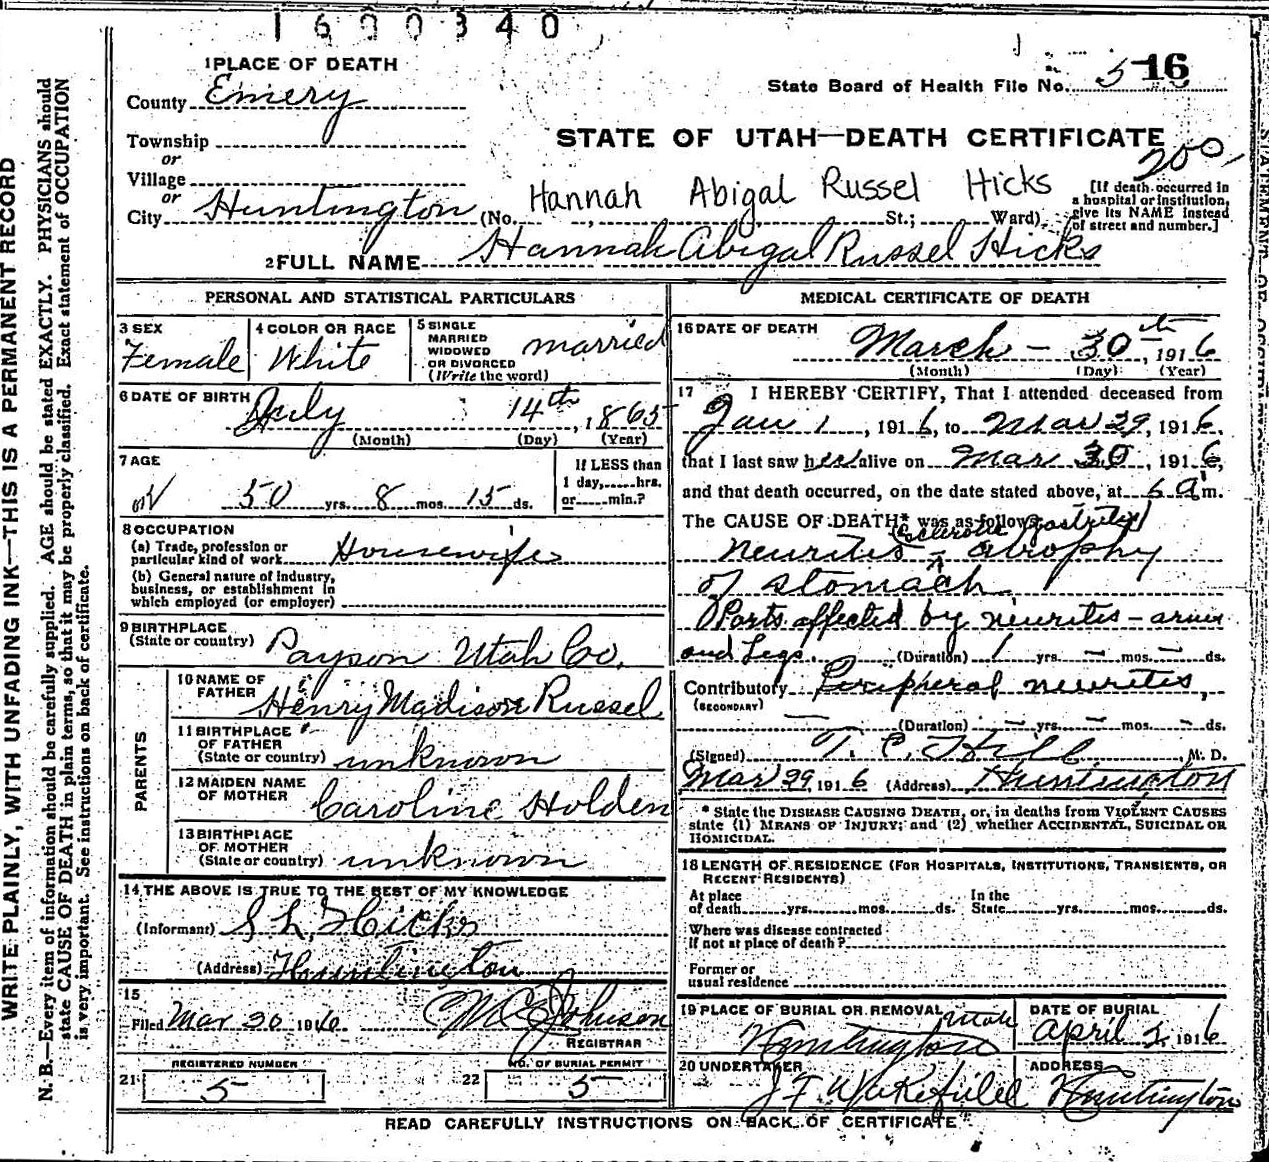 1690340
1 PLACE OF DEATH
State Board of Health File No. 5 16
County Emery
STATE OF UTAH—DEATH CERTIFICATE
Township
or
200
Village
or
City Huntington (No. , St.; Ward)
Hannah Abigal Russel Hicks
[If death occurred in a hospital or institution, give its NAME instead of street and number.]
2 FULL NAME Hannah Abigal Russel Hicks
PERSONAL AND STATISTICAL PARTICULARS
3 SEX Female
4 COLOR OR RACE White
5 SINGLE MARRIED WIDOWED OR DIVORCED (Write the word) married
6 DATE OF BIRTH July 14th, 1865
(Month) (Day) (Year)
7 AGE
50 yrs. 8 mos. 15 ds.
If LESS than
1 day, hrs.
or min.?
8 OCCUPATION
(a) Trade, profession or
particular kind of work Housewife
(b) General nature of industry,
business, or establishment in
which employed (or employer)
9 BIRTHPLACE
(State or country) Payson Utah Co.
PARENTS
10 NAME OF
FATHER Henry Madison Russel
11 BIRTHPLACE
OF FATHER
(State or country) unknown
12 MAIDEN NAME
OF MOTHER Caroline Holden
13 BIRTHPLACE
OF MOTHER
(State or country) unknown
14 THE ABOVE IS TRUE TO THE BEST OF MY KNOWLEDGE
(Informant) S L Hicks
(Address) Huntington
15
Filed Mar 30 1916 M E Johnson
REGISTRAR
REGISTERED NUMBER
21 5
NO. OF BURIAL PERMIT
22 5
MEDICAL CERTIFICATE OF DEATH
16 DATE OF DEATH
March - 30th, 1916
(Month) (Day) (Year)
17 I HEREBY CERTIFY, That I attended deceased from
Jan 1, 1916, to Mar 29, 1916,
that I last saw her alive on Mar 30, 1916,
and that death occurred, on the date stated above, at 6 a m.
The CAUSE OF DEATH* was as follows:
(Sclerotic gastritis)
neuritis - atrophy
of stomach
Parts affected by neuritis - arms
and Legs. (Duration) 1 yrs. – mos. – ds.
Contributory Peripheral neuritis,
(SECONDARY)
(Duration) – yrs. – mos. – ds.
(Signed) T. C. Hill M. D.
Mar 29 1916 (Address) Huntington
* State the DISEASE CAUSING DEATH, or, in deaths from VIOLENT CAUSES
state (1) MEANS OF INJURY; and (2) whether ACCIDENTAL, SUICIDAL OR
HOMICIDAL.
18 LENGTH OF RESIDENCE (FOR HOSPITALS, INSTITUTIONS, TRANSIENTS, OR
RECENT RESIDENTS)
At place
of death yrs. mos. ds.
In the
State yrs. mos. ds.
Where was disease contracted
if not at place of death?
Former or
usual residence
19 PLACE OF BURIAL OR REMOVAL Utah
Huntington
DATE OF BURIAL
April 2, 1916
20 UNDERTAKER
J F Wakefield
ADDRESS
Huntington
READ CAREFULLY INSTRUCTIONS ON BACK OF CERTIFICATE
WRITE PLAINLY, WITH UNFADING INK—THIS IS A PERMANENT RECORD
N. B.—Every item of information should be carefully supplied. AGE should be stated EXACTLY. PHYSICIANS should
state CAUSE OF DEATH in plain terms, so that it may be properly classified. Exact statement of OCCUPATION
is very important. See instructions on back of certificate.